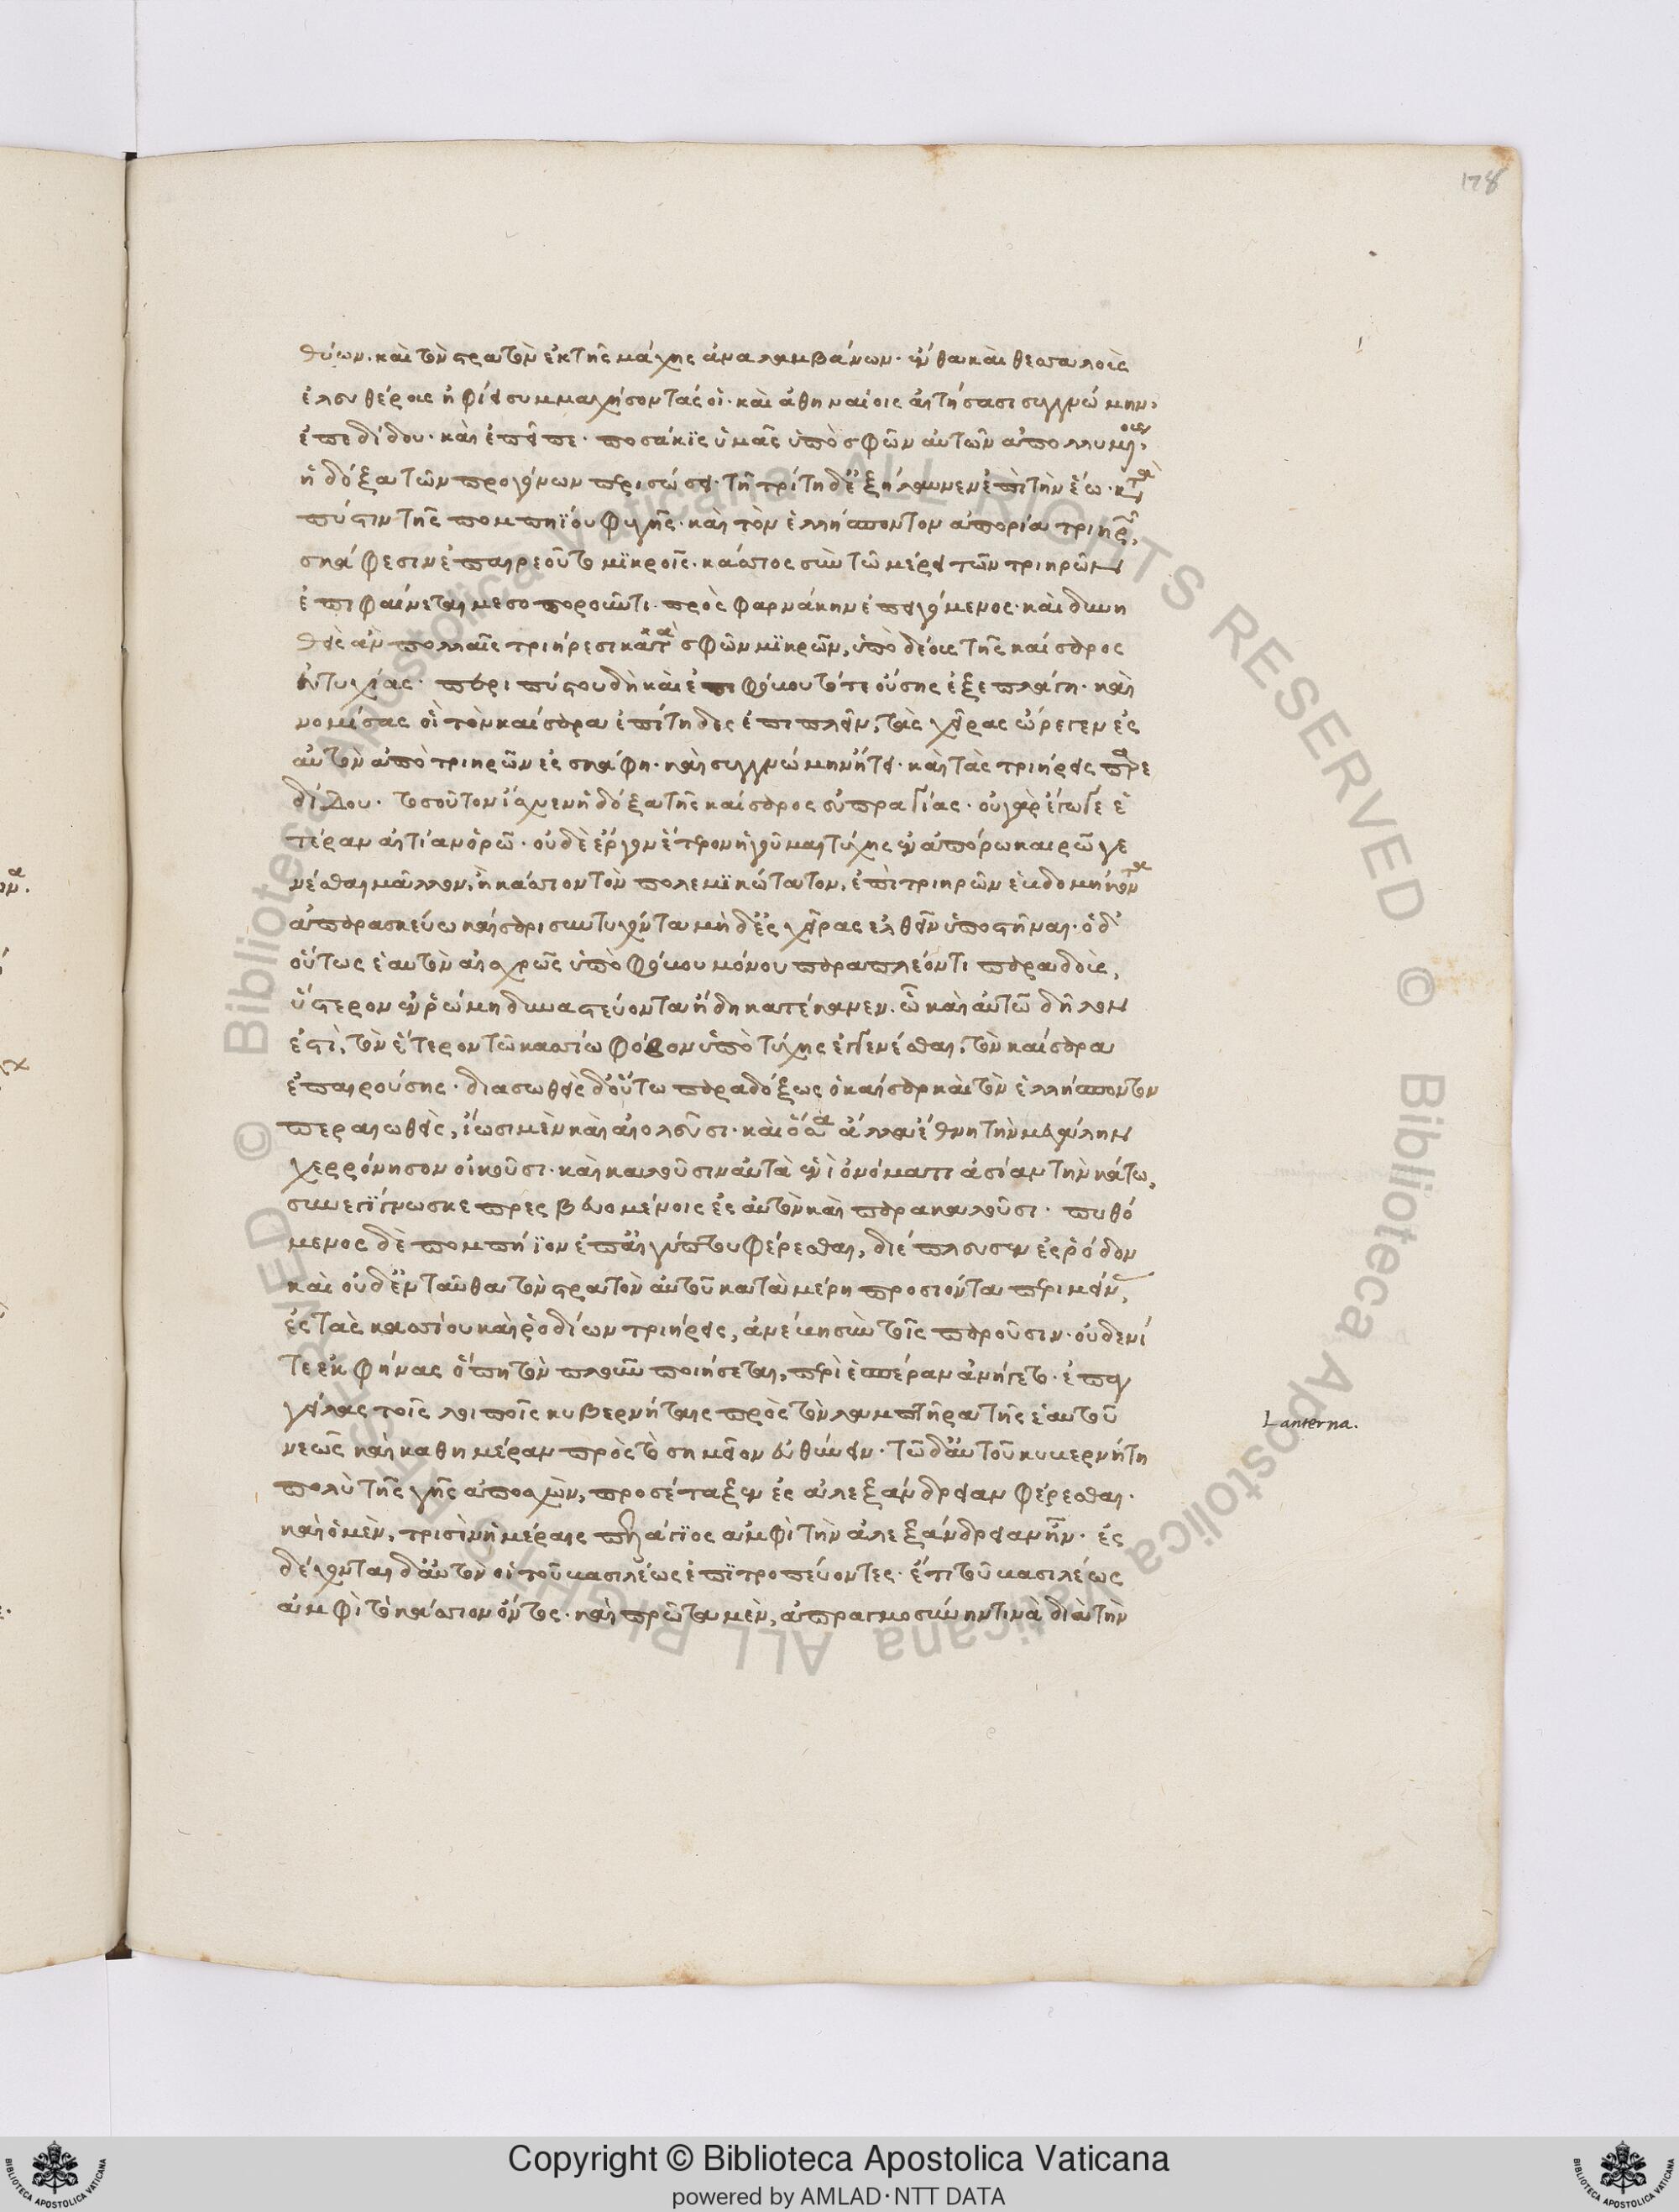 178
θύων. καὶ τὸν στρατὸν ἐκ τῆς μάχης ἀναλαμβάνων. ἔνθα καὶ θεσσαλοὶς
ἐλευθέρους ἠφίει συμμαχήσοντάς οἱ. καὶ ἀθηναίοις αἰτήσασι συγγνώμην,
ἐπεδίδου. καὶ ἐπεῖπε. ποσάκις ὑμᾶς ὑπὸ σφῶν αὐτῶν ἀπολλυμένους,
ἡ δόξα τῶν προγόνων περισώσει. τῆ τρίτη δ' ἐξήλαυνεν ἐπὶ τὴν ἕω. κατὰ
πύστιν τῆς πομπηΐου φυγῆς. καὶ τὸν ἑλλήσποντον ἀπορία τριηρῶν,
σκάφεσιν ἐπαιρεοῦτο μικροῖς. κάσσιος σὺν τῶ μέρει τῶν τριηρῶν
ἐπιφαίνεται μεσοποροῦντι. πρὸς φαρνάκην ἐπειγόμενος. καὶ δυνη
θεὶς ἂν πολλαῖς τριήρεσι κατὰ σκαφῶν μικρῶν, ὑπὸ δέους τῆς καίσαρος
εὐτυχίας. περιπύστου δὴ καὶ ἐπιφόβου τότε οὔσης ἐξεπλάγη. καὶ
νομίσας οἱ τὸν καίσαρα ἐπίτηδες ἐπιπλεῖν, τὰς χεῖρας ὤρεγεν ἐς
αὐτὸν ἀπὸ τριηρῶν ἐς σκάφη. καὶ συγγνώμην ἤτει. καὶ τὰς τριήρεις παρε
δίδου. τοσοῦτον ἴσχυεν ἡ δόξα τῆς καίσαρος εὐπραγίας. οὐ γὰρ ἔγωγε ἑ
τέραν αἰτίαν ὁρῶ. οὐδὲ ἔργον ἕτερον ἡγοῦμαι τύχης ἐν ἀπόρω καιρῶ γε
νέσθαι μᾶλλον, ἢ κάσσιον τὸν πολεμικώτατον, ἐπὶ τριηρῶν ἑβδομήκοντα
ἀπαρασκεύω καίσαρι συντυχόντα μὴδ' ἐς χεῖρας ἐλθεῖν ὑποστῆναι. ὁ δ'
οὕτως ἑαυτὸν αἰσχρῶς ὑπὸ φόβου μόνου παραπλέοντι παραδοὺς,
ὕστερον ἐν ῥώμη δυναστεύοντα ἤδη κατέκανεν. ὧ καὶ αὐτῶ δῆλον
ἐστὶ, τὸν ἕτερον τῶ κασσίω φόβον ὑπὸ τύχης ἐγγενέσθαι, τὸν καίσαρα
ἐπαιρούσης. διασωθεὶς δ' οὕτω παραδόξως ὁ καῖσαρ καὶ τὸν ἑλλήσποντον
περαιωθεὶς, ἴωσι μὲν καὶ αἰολεῦσι. καὶ ὅσα ἄλλα ἔθνη τὴν μεγάλην
χερρόνησον οἰκοῦσι. καὶ καλοῦσιν αὐτὰ ἑνὶ ὀνόματι ἀσίαν τὴν κάτω,
συνεγίγνωσκε πρεσβευομένοις ἐς αὐτὸν καὶ παρακαλοῦσι. πυθό
μενος δὲ πομπήϊον ἐπ' αἰγύπτου φέρεσθαι, διέπλευσεν ἐς ῥόδον
καὶ οὐδ' ἐνταῦθα τὸν στρατὸν αὐτοῦ κατὰ μέρη προσιόντα περιμείνας,
ἐς τὰς κασσίου καὶ ῥοδίων τριήρεις, ἀνέβη σὺν τοῖς παροῦσιν. οὐδενί
τε ἐκφήνας ὅπη τὸν πλοῦν ποιήσεται, περὶ ἑσπέραν ἀνήγετο. ἐπαγ
γείλας τοῖς λοιποῖς κυβερνήταις πρὸς τὸν λαμπτῆρα τῆς ἑαυτοῦ
νεὼς καὶ καθημέραν πρὸς τὸ σημεῖον εὐθύνειν. τῶ δ' αὑτοῦ κυβερνήτη
πολὺ τῆς γῆς ἀποσχὼν, προσέταξεν ἐς ἀλεξάνδρειαν φέρεσθαι.
καὶ ὁ μὲν, τρισὶν ἡμέραις πελάγιος ἀμφὶ τὴν ἀλεξάνδρειαν ἦν. ἐς
δέχονται δ' αὐτὸν οἱ τοῦ βασιλέως ἐπιτροπεύοντες. ἔτι τοῦ βασιλέως
ἀμφὶ τὸ κάσσιον ὄντος. καὶ πρῶτα μὲν, ἀπραγμοσύνην τινὰ διὰ τὴν
Lanterna.
Copyright © Biblioteca Apostolica Vaticana
powered by AMLAD·NTT DATA